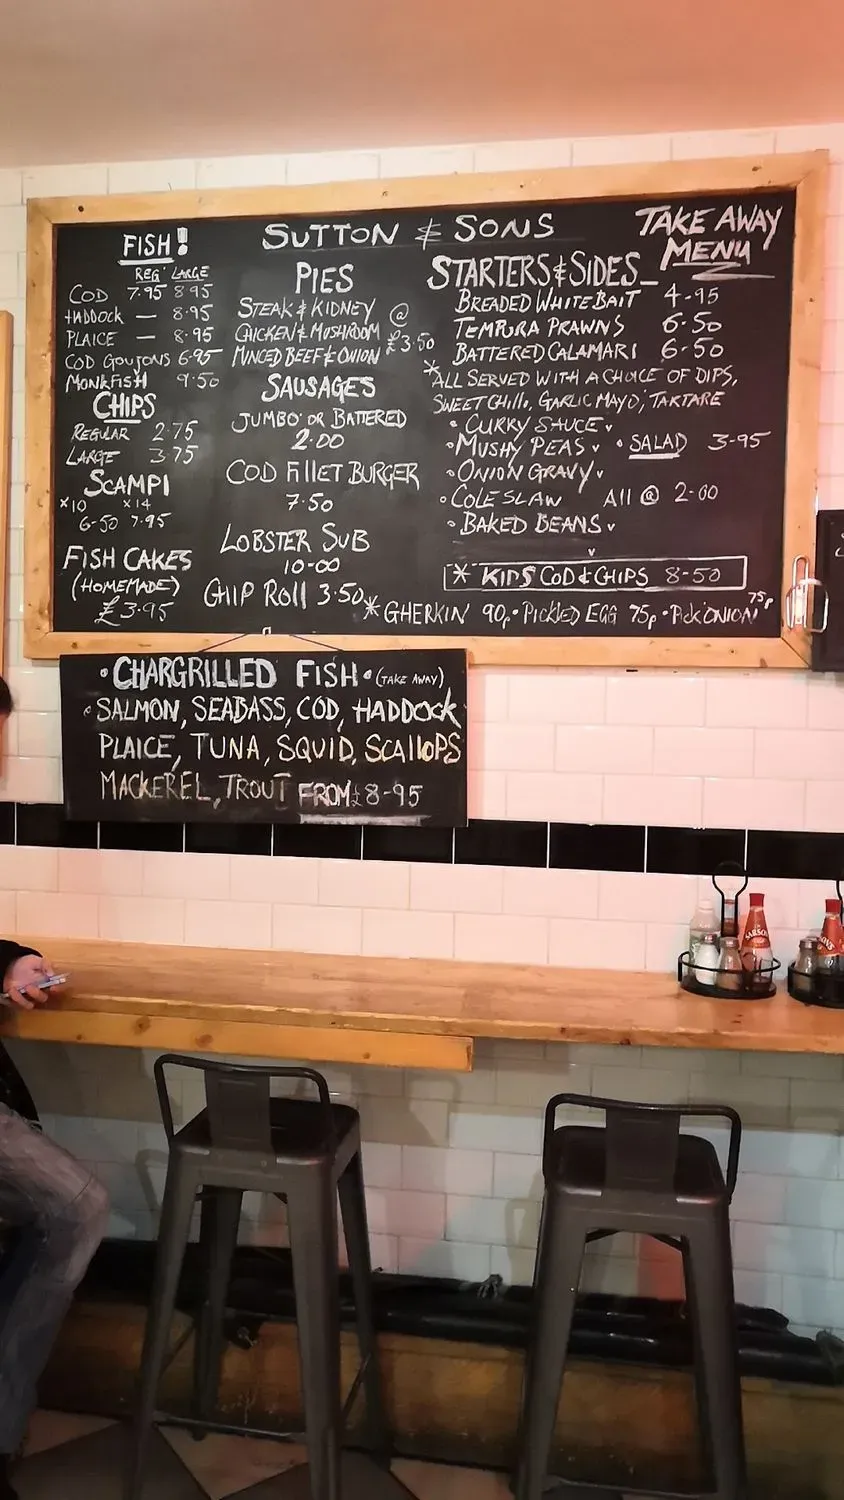 SUTTON & SONS
TAKE AWAY
MENU
FISH!
REG LARGE
COD 7.95 8.95
HADDOCK — 8.95
PLAICE — 8.95
COD GOUJONS 6.95
MONKFISH 9.50
CHIPS
REGULAR 2.75
LARGE 3.75
SCAMPI
x10 x14
6-50 7.95
FISH CAKES
(HOMEMADE)
£3.95
PIES
STEAK & KIDNEY @
CHICKEN & MUSHROOM £3.50
MINCED BEEF & ONION
SAUSAGES
JUMBO OR BATTERED
2.00
COD FILLET BURGER
7.50
LOBSTER SUB
10-00
CHIP ROLL 3.50
STARTERS & SIDES
BREADED WHITEBAIT 4-95
TEMPURA PRAWNS 6-50
BATTERED CALAMARI 6-50
*ALL SERVED WITH A CHOICE OF DIPS,
SWEET CHILLI, GARLIC MAYO, TARTARE
• CURRY SAUCE v
• MUSHY PEAS v • SALAD 3-95
• ONION GRAVY v
• COLESLAW All @ 2-00
• BAKED BEANS v
v
* KIDS COD & CHIPS 8-50
* GHERKIN 90p • PICKLED EGG 75p • PICK'ONION 75p
• CHARGRILLED FISH • (TAKE AWAY)
• SALMON, SEABASS, COD, HADDOCK
PLAICE, TUNA, SQUID, SCALLOPS
MACKEREL, TROUT FROM £8-95
SARSON'S